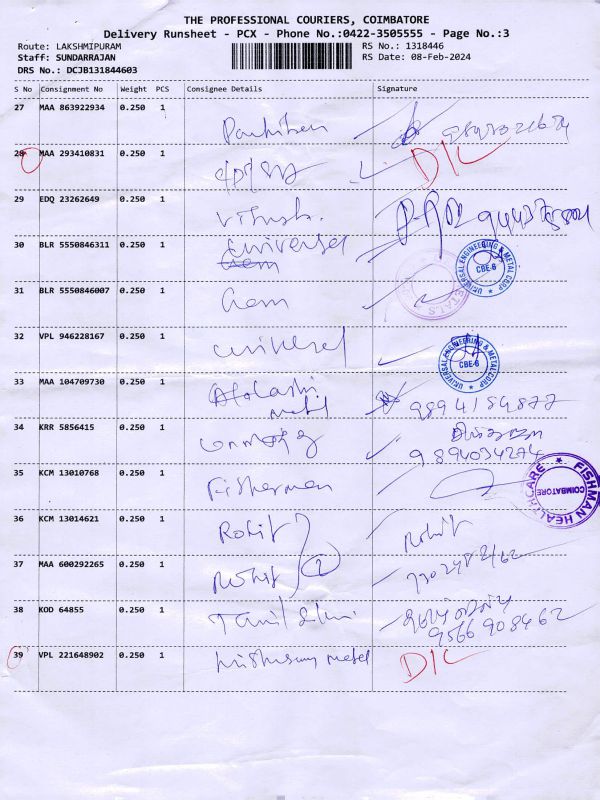 THE PROFESSIONAL COURIERS, COIMBATORE
Delivery Runsheet - PCX - Phone No.:0422-3505555 - Page No.:3
Route: LAKSHMIPURAM RS No.: 1318446
Staff: SUNDARRAJAN RS Date: 08-Feb-2024
DRS No.: DCJB131844603
S No Consignment No Weight PCS Consignee Details Signature
27 MAA 863922934 0.250 1
28 MAA 293410831 0.250 1 D/L
29 EDQ 23262649 0.250 1
30 BLR 5550846311 0.250 1 universel
UNIVERSAL ENGINEERING & METAL CORP CBE-6
31 BLR 5550846007 0.250 1 Gem
METALS
32 VPL 946228167 0.250 1 universel
UNIVERSAL ENGINEERING & METAL CORP CBE-6
33 MAA 104709730 0.250 1 metal 9894159877
34 KRR 5856415 0.250 1
9894034274
35 KCM 13010768 0.250 1 Fishermen
FISHMAN HEALTHCARE COIMBATORE
36 KCM 13014621 0.250 1 Rohit Rohit
37 MAA 600292265 0.250 1 Rohit 2
38 KOD 64855 0.250 1 Tamil
9566908462
39 VPL 221648902 0.250 1 metal D/L